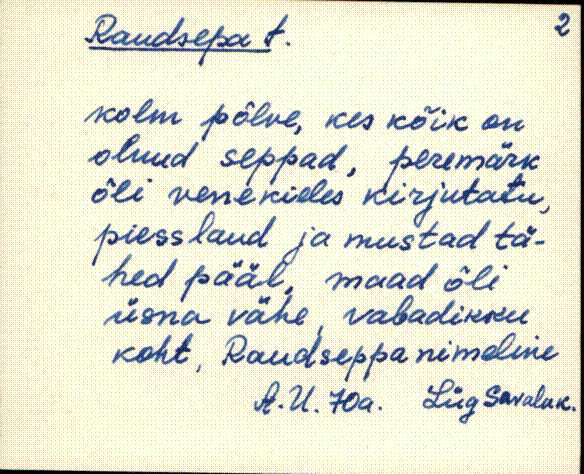 Raudsepa t. 2
kolm põlve, kes kõik on
olnud seppad, peremärk
õli venekides kirjutatu,
piesslaud ja mustad tä-
hed pääl, maad õli
üsna vähe, vabadikku
koht, Raudseppanimeline
A.U. 70a. Lüg Savaluk.